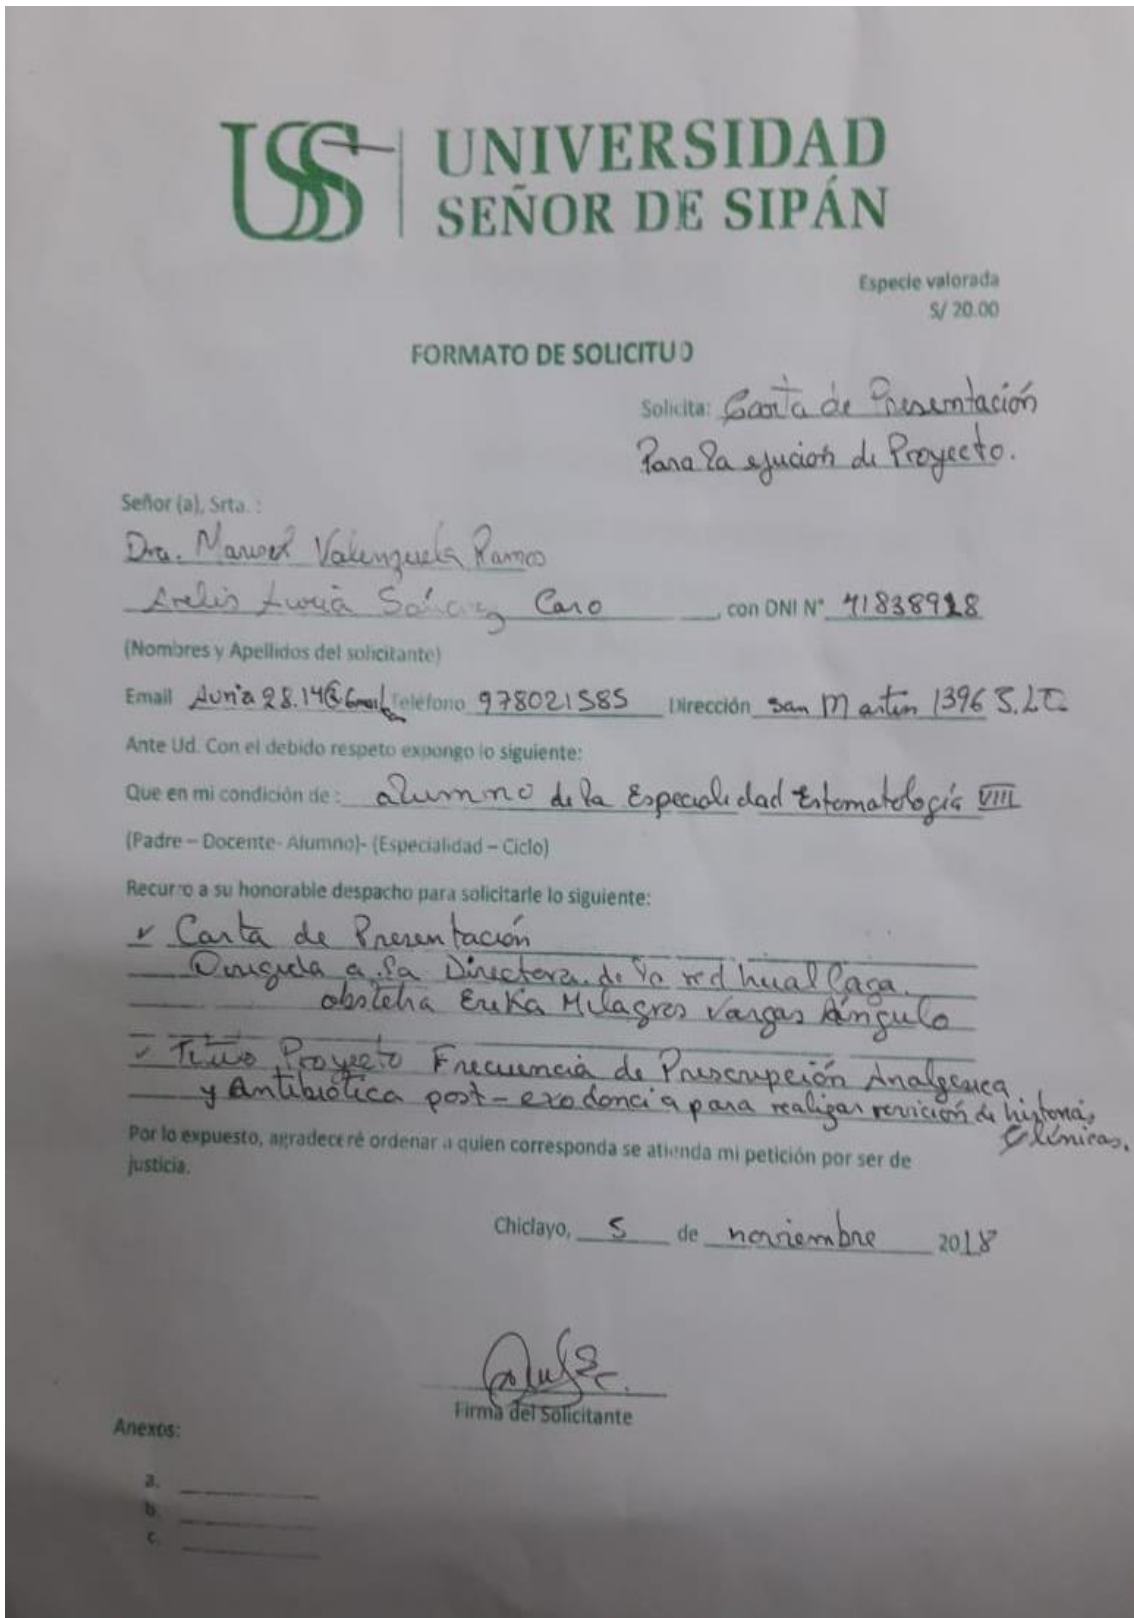 USS
UNIVERSIDAD
SEÑOR DE SIPÁN
Especie valorada
S/ 20.00
FORMATO DE SOLICITUD
Solicita: Carta de Presentación
Para la ejución de Proyecto.
Señor (a), Srta. :
Dra. Marisel Valenzuela Ramos
Caro, con DNI N° 41838928
(Nombres y Apellidos del solicitante)
Email Auria28.14@Gmail Teléfono 978021585 Dirección San Martin 1396 S.LT.
Ante Ud. Con el debido respeto expongo lo siguiente:
Que en mi condición de : alumno de la Especialidad Estomatología VIII
(Padre – Docente- Alumno)- (Especialidad – Ciclo)
Recurro a su honorable despacho para solicitarle lo siguiente:
✓ Carta de Presentación
Dirigida a la Directora de la red huallaga.
Erika Milagros Vargas Ángulo
✓ Proyecto Frecuencia de Prescripción Analgésica
y Antibiótica post-exodoncia para realizar revición de historias
Clínicas.
Por lo expuesto, agradeceré ordenar a quien corresponda se atienda mi petición por ser de
justicia.
Chiclayo, 5 de noviembre 2018
Firma del Solicitante
Anexos:
a.
b.
c.